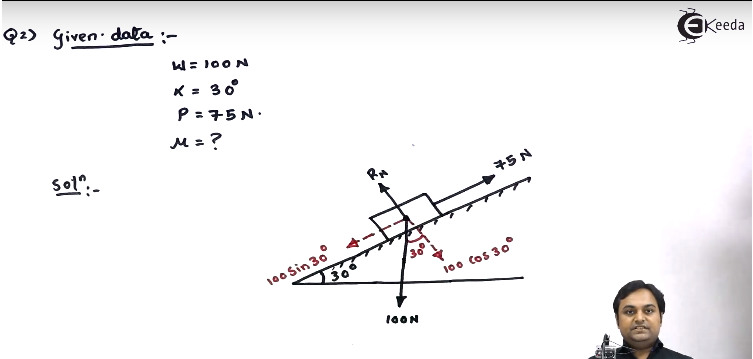 Q2) Given data :-
W = 100 N
α = 30°
P = 75 N.
μ = ?
Solⁿ:-
RN
75 N
100 Sin 30°
30°
30°
100 cos 30°
100N
EKeeda